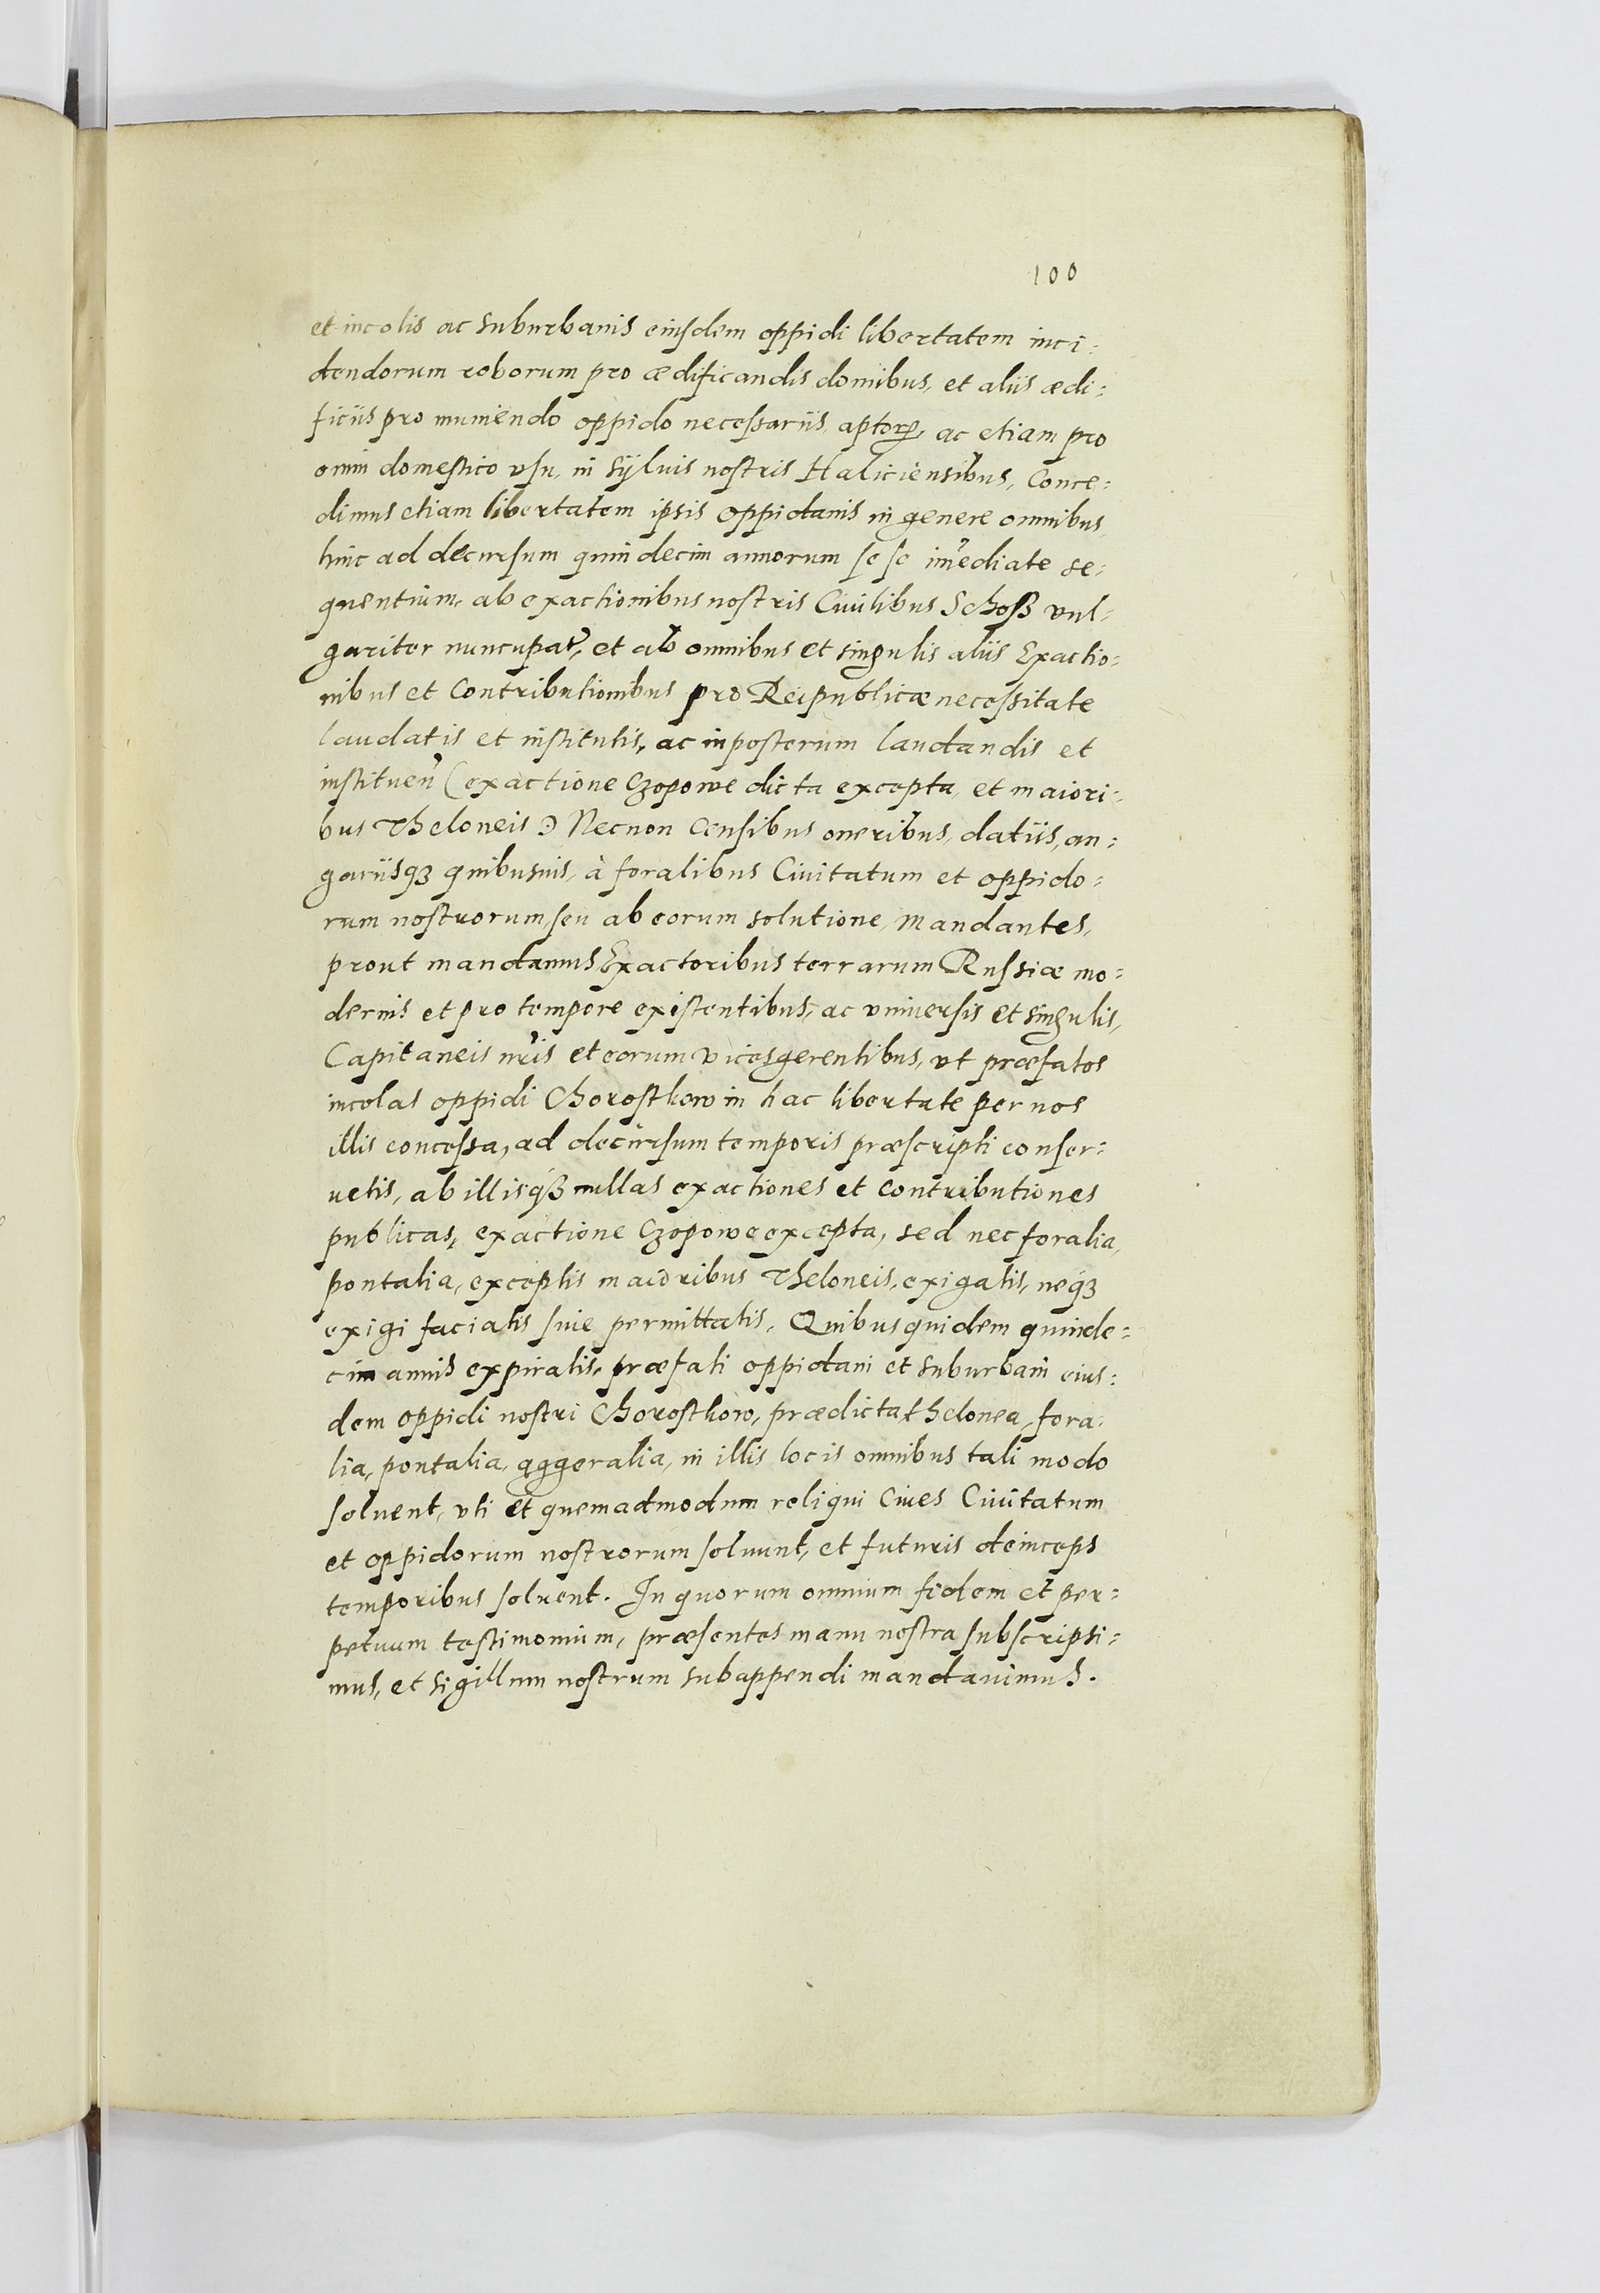 100
et incolis ac suburbanis eiusdem oppidi libertatem inci:
dendorum roborum pro ædificandis domibus, et aliis ædi:
ficiis pro muniendo oppido necessariis, aptorꝝ, ac etiam pro
omni domestico vsu, in sÿluis nostris Haliciensibus, Conce:
dimus etiam libertatem ipsis oppidanis in genere omnibus,
hinc ad decursum quindecim annorum se se im̃ediate se:
quentium, ab exactionibus nostris Ciuilibus Schoss vul:
gariter nuncupat̃, et ab omnibus et singulis aliis Exactio:
nibus et Contributionibus pro Reipublicæ necessitate
laudatis et institutis, ac in posterum laudandis et
instituen̄ (exactione Czopowe dicta excepta, et maiori:
bus Theloneis) Necnon Censibus oneribus, datiis, an:
gariisqꝫ quibusuis, à foralibus Ciuitatum et oppido:
rum nostrorum, seu ab eorum solutione, Mandantes,
prout mandamus Exactoribus terrarum Russiæ mo:
dernis et pro tempore existentibus, ac vniuersis et singulis,
Capitaneis nr̃is et eorum vicesgerentibus, vt præfatos
incolas oppidi Chorosthow in hac libertate per nos
illis concessa, ad decursum temporis præscripti conser:
uetis, ab illisqꝫ nullas exactiones et contributiones
publicas, exactione Czopowe excepta, sed nec foralia,
pontalia, exceptis maioribus Theloneis, exigatis, neqꝫ
exigi faciatis siue permittatis. Quibus quidem quinde:
cim annis expiratis, præfati oppidani et suburbani eius:
dem oppidi nostri Chorosthow, prædicta thelonea, fora:
lia, pontalia, aggeralia, in illis locis omnibus tali modo
soluent, vti et quemadmodum reliqui Ciues Ciuitatum
et oppidorum nostrorum soluunt, et futuris deinceps
temporibus soluent. In quorum omnium fidem et per:
petuum testimonium, præsentes manu nostra subscripsi:
mus, et sigillum nostrum subappendi mandauimus.